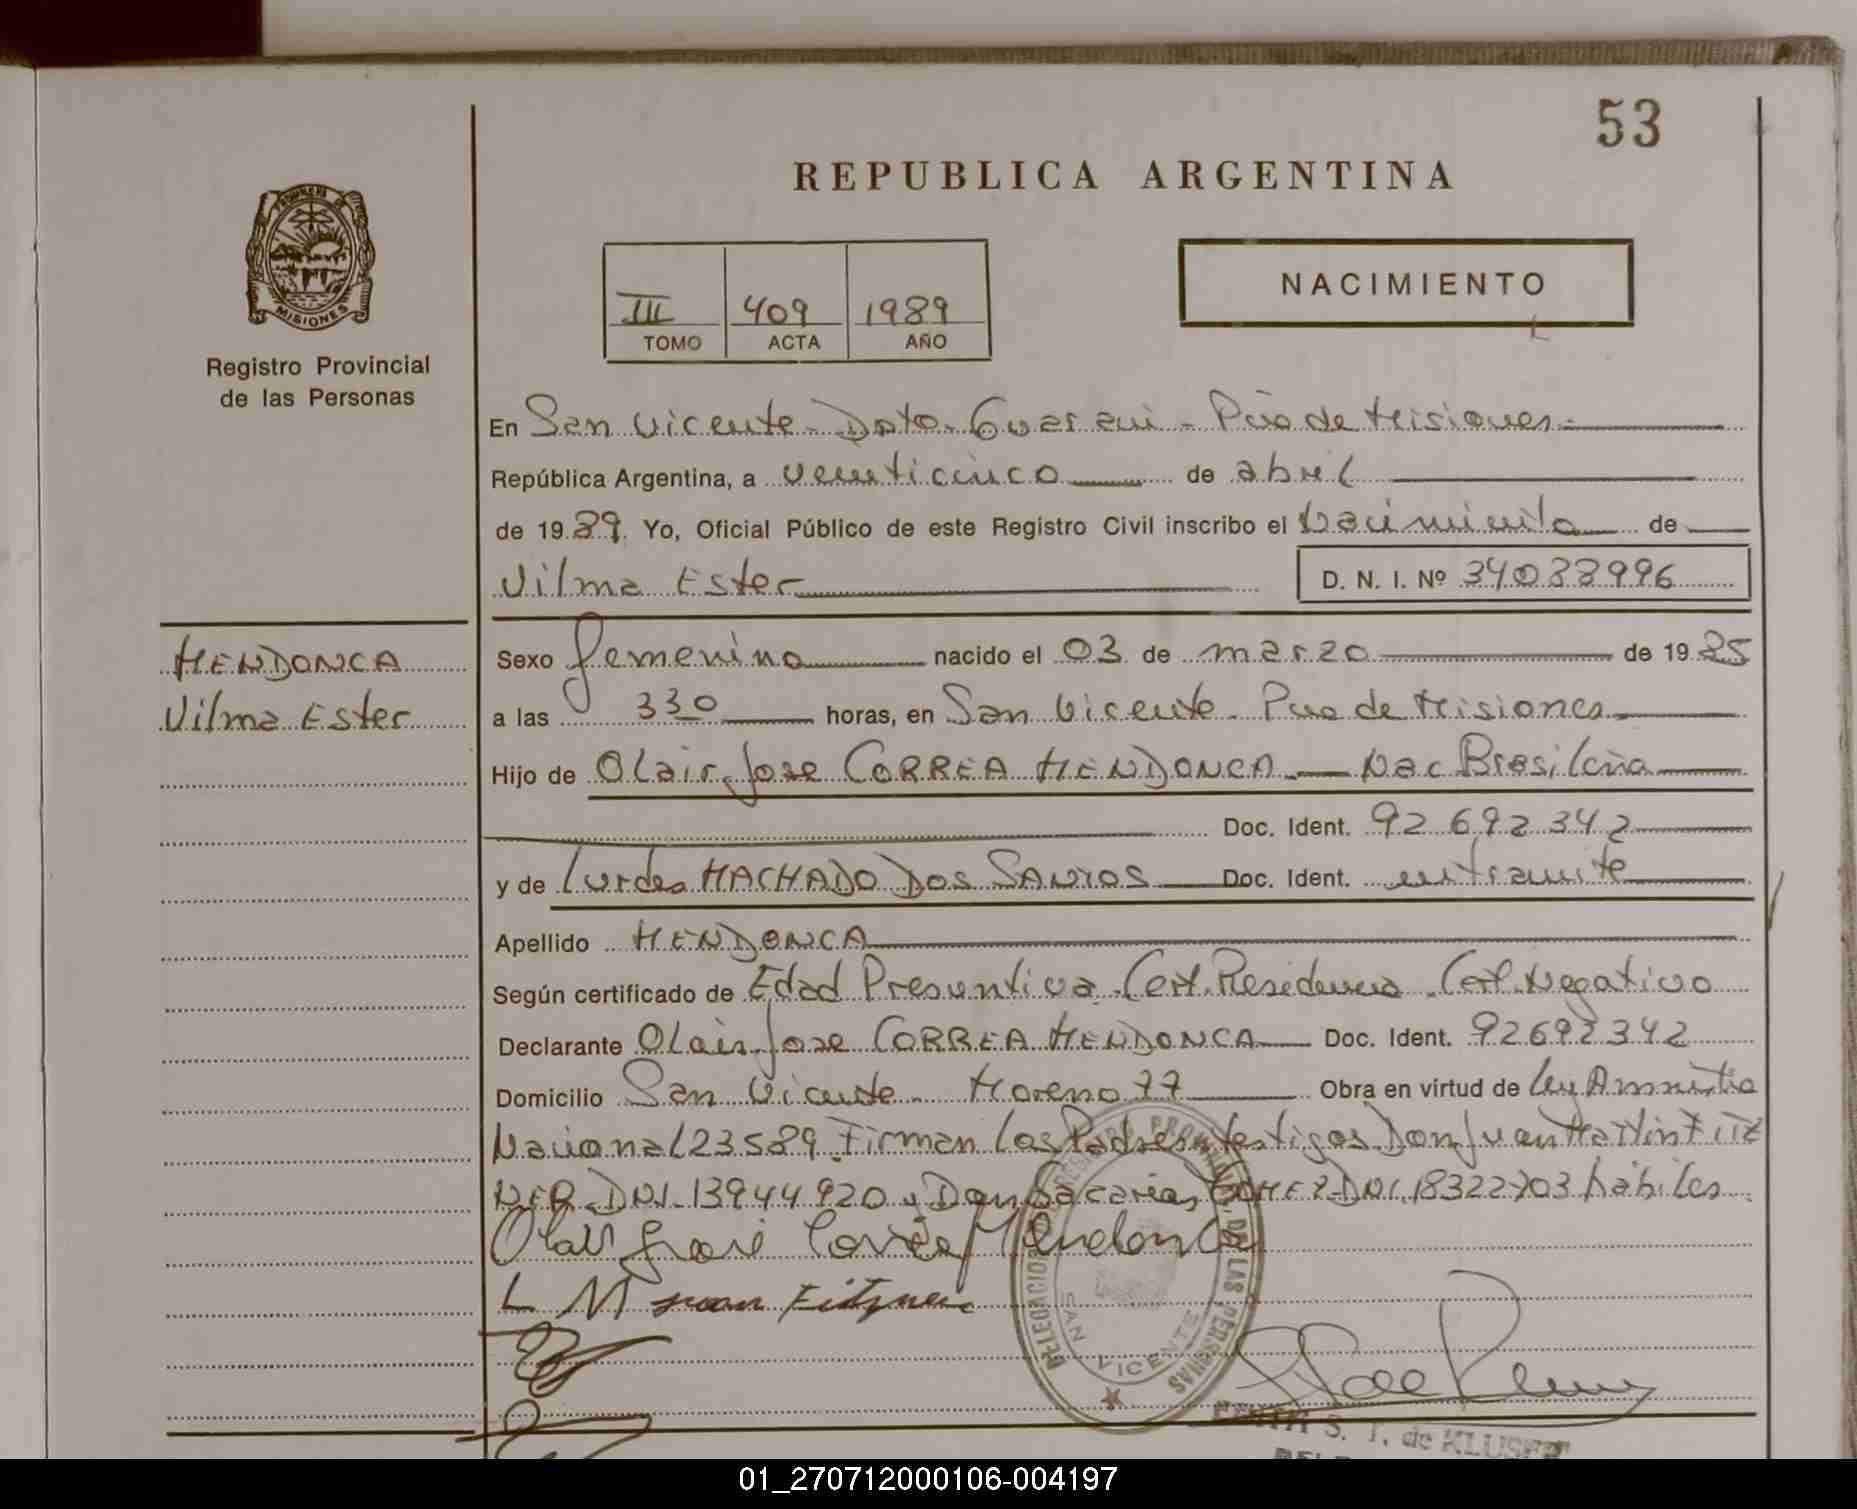 53
REPUBLICA ARGENTINA
III 409 1989
TOMO ACTA AÑO
NACIMIENTO
MISIONES
Registro Provincial
de las Personas
En San Vicente - Dpto. Guarani - Pcia de Misiones.-
República Argentina, a veinticinco de abril
de 1989. Yo, Oficial Público de este Registro Civil inscribo el nacimiento de
Vilma Ester
D. N. I. Nº 34088996
MENDONCA
Vilma Ester
Sexo femenino nacido el 03 de marzo de 1985
a las 330 horas, en San Vicente - Pcia de Misiones
Hijo de Olair Jose CORREA MENDONCA - Nac Brasileña
Doc. Ident. 92 692 342
y de Lurdes MACHADO DOS SANTOS Doc. Ident. en tramite
Apellido MENDONCA
Según certificado de Edad Presuntiva. Cert. Residencia. Cert. Negativo
Declarante Olair Jose CORREA MENDONCA Doc. Ident. 92692342
Domicilio San Vicente - Moreno 77 Obra en virtud de Ley Amnistia
Nacional 23589. Firman los Padres testigos Don Juan Martin FITZ
NER - DNI. 13944920 y Don Sacarias GOMEZ - DNI. 18322703 hábiles
Olair José Corrêa Mendonca
L M Juan Fitzner
DELEGACION REGISTRO PROVINCIAL DE LAS PERSONAS
SAN VICENTE
S. T. de KLUSER
01_270712000106-004197